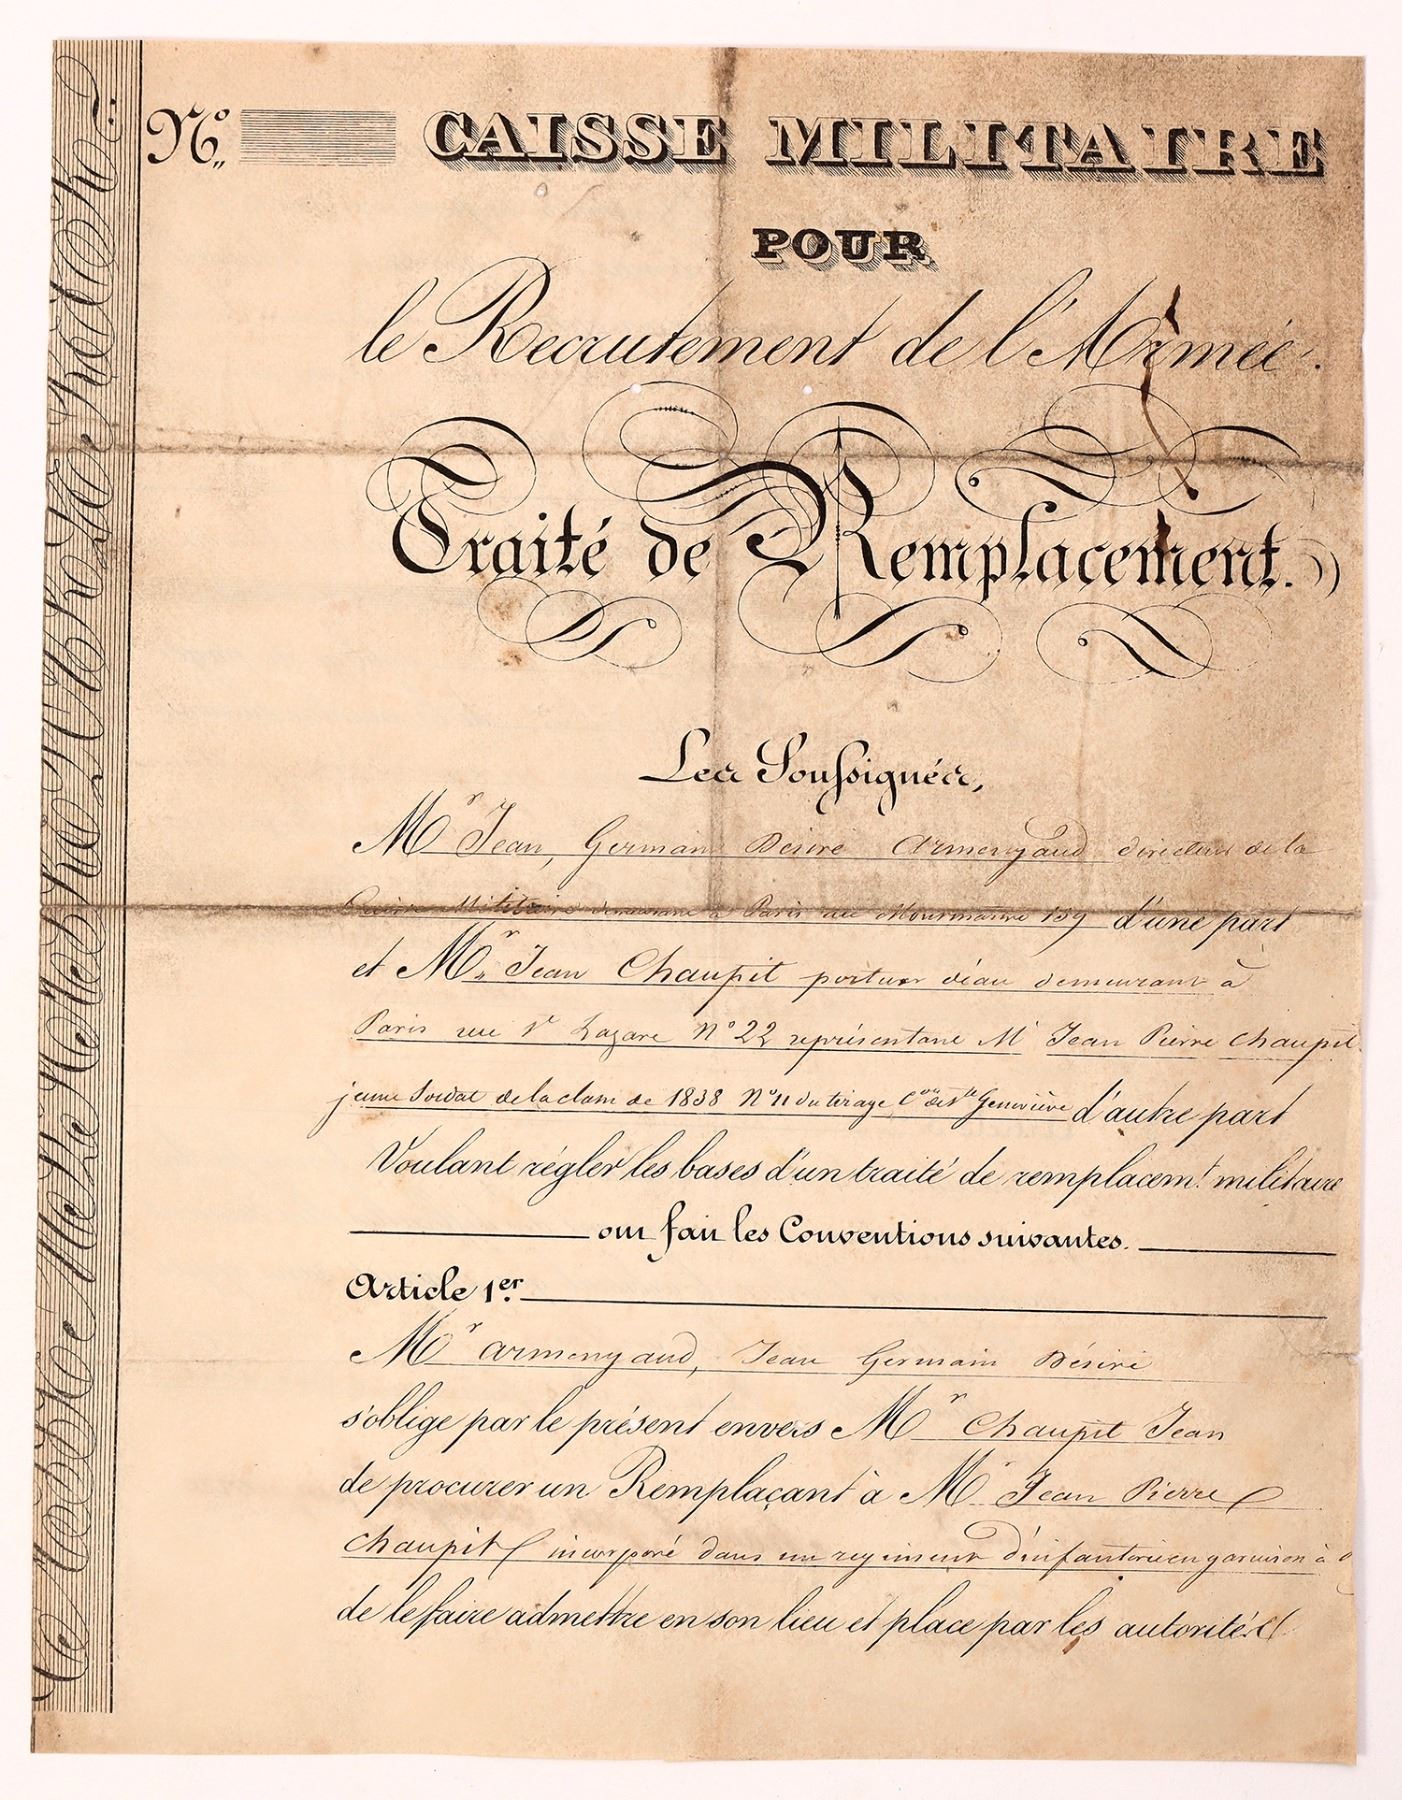 N°
CAISSE MILITAIRE
POUR
le Recrutement de l'Armée.
Traité de Remplacement.
Les Soussignés,
Mr Jean, Germain Désiré Armengaud directeur de la
Militaire demeurant à Paris rue Montmartre 139 d'une part
et Mr Jean Chaupit porteur d'eau demeurant à
Paris rue St Lazare N° 22 représentant Mr Jean Pierre Chaupit
jeune Soldat de la classe de 1838 N° 11 du tirage Con de Ste Geneviève d'autre part
Voulant régler les bases d'un traité de remplacemt. militaire
ont fait les Conventions suivantes.
Article 1er.
Mr Armengaud, Jean Germain Désiré
s'oblige par le présent envers Mr Chaupit Jean
de procurer un Remplaçant à Mr Jean Pierre
Chaupit incorporé dans un regiment d'infanterie en garnison à
de le faire admettre en son lieu et place par les autorités